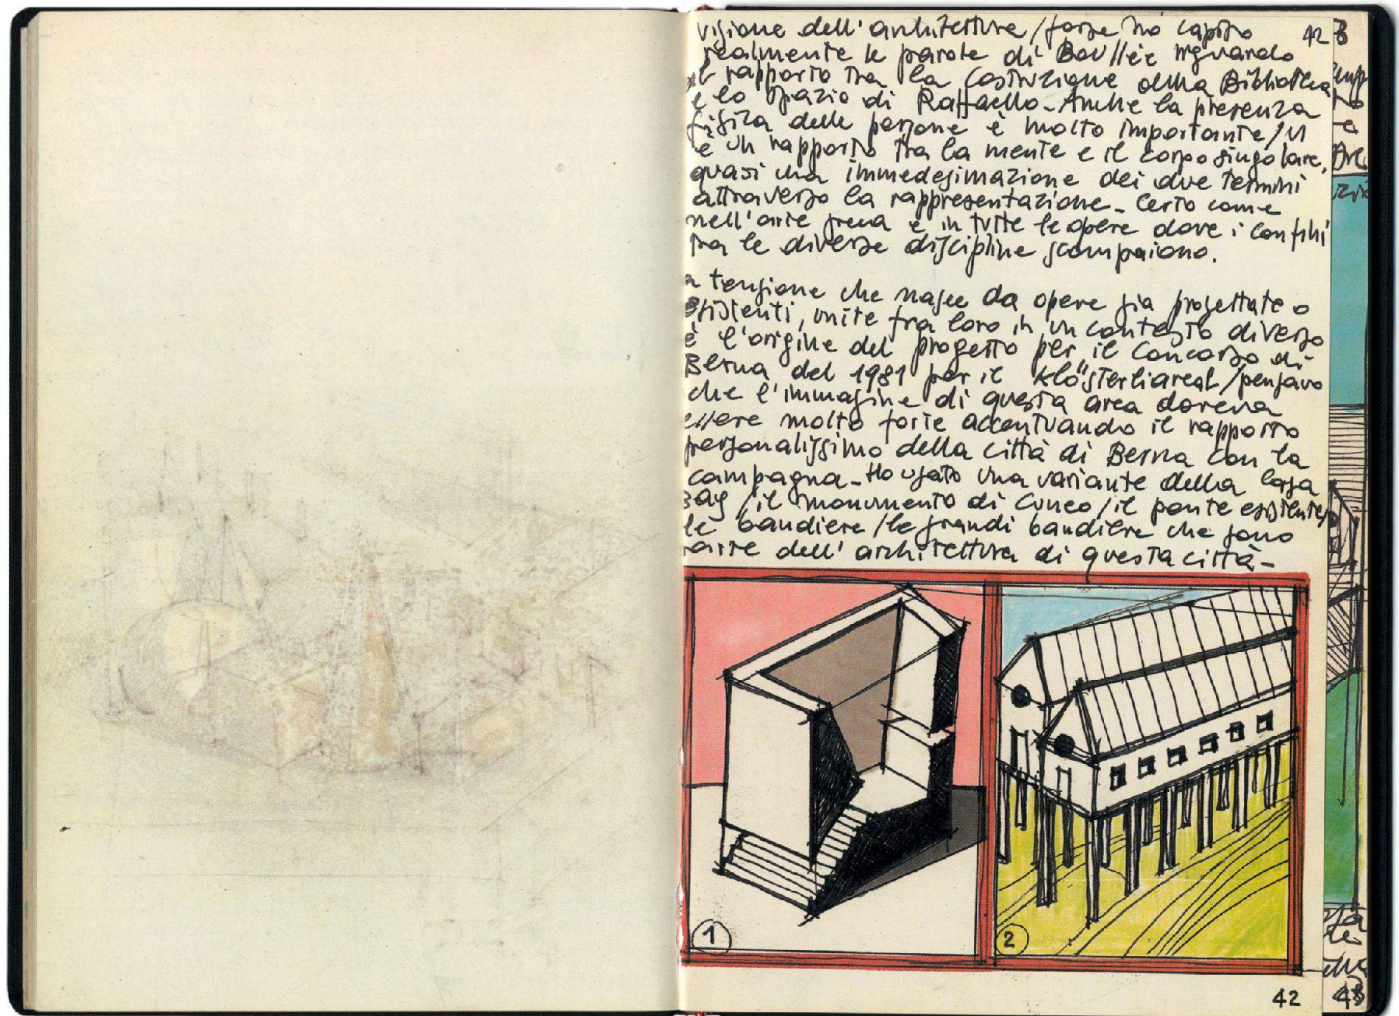 visione dell'architettura/forse ho capito
realmente le parole di Boullèe riguardo
il rapporto tra la costruzione della Biblioteca
e lo spazio di Raffaello. Anche la presenza
fisica delle persone è molto importante/vi
è un rapporto tra la mente e il corpo singolare,
quasi una immedesimazione dei due termini
attraverso la rappresentazione. Certo come
nell'arte greca e in tutte le opere dove i confini
tra le diverse discipline scompaiono.
a tensione che nasce da opere già progettate o
esistenti, unite fra loro in un contesto diverso
è l'origine del progetto per il Concorso di
Berna del 1981 per il Klösterliareal/pensavo
che l'immagine di questa area doveva
essere molto forte accentuando il rapporto
personalissimo della città di Berna con la
campagna. Ho usato una variante della casa
Bay/il monumento di Cuneo/il ponte esistente/
le bandiere/le grandi bandiere che sono
parte dell'architettura di questa città-
1
2
42
42
43